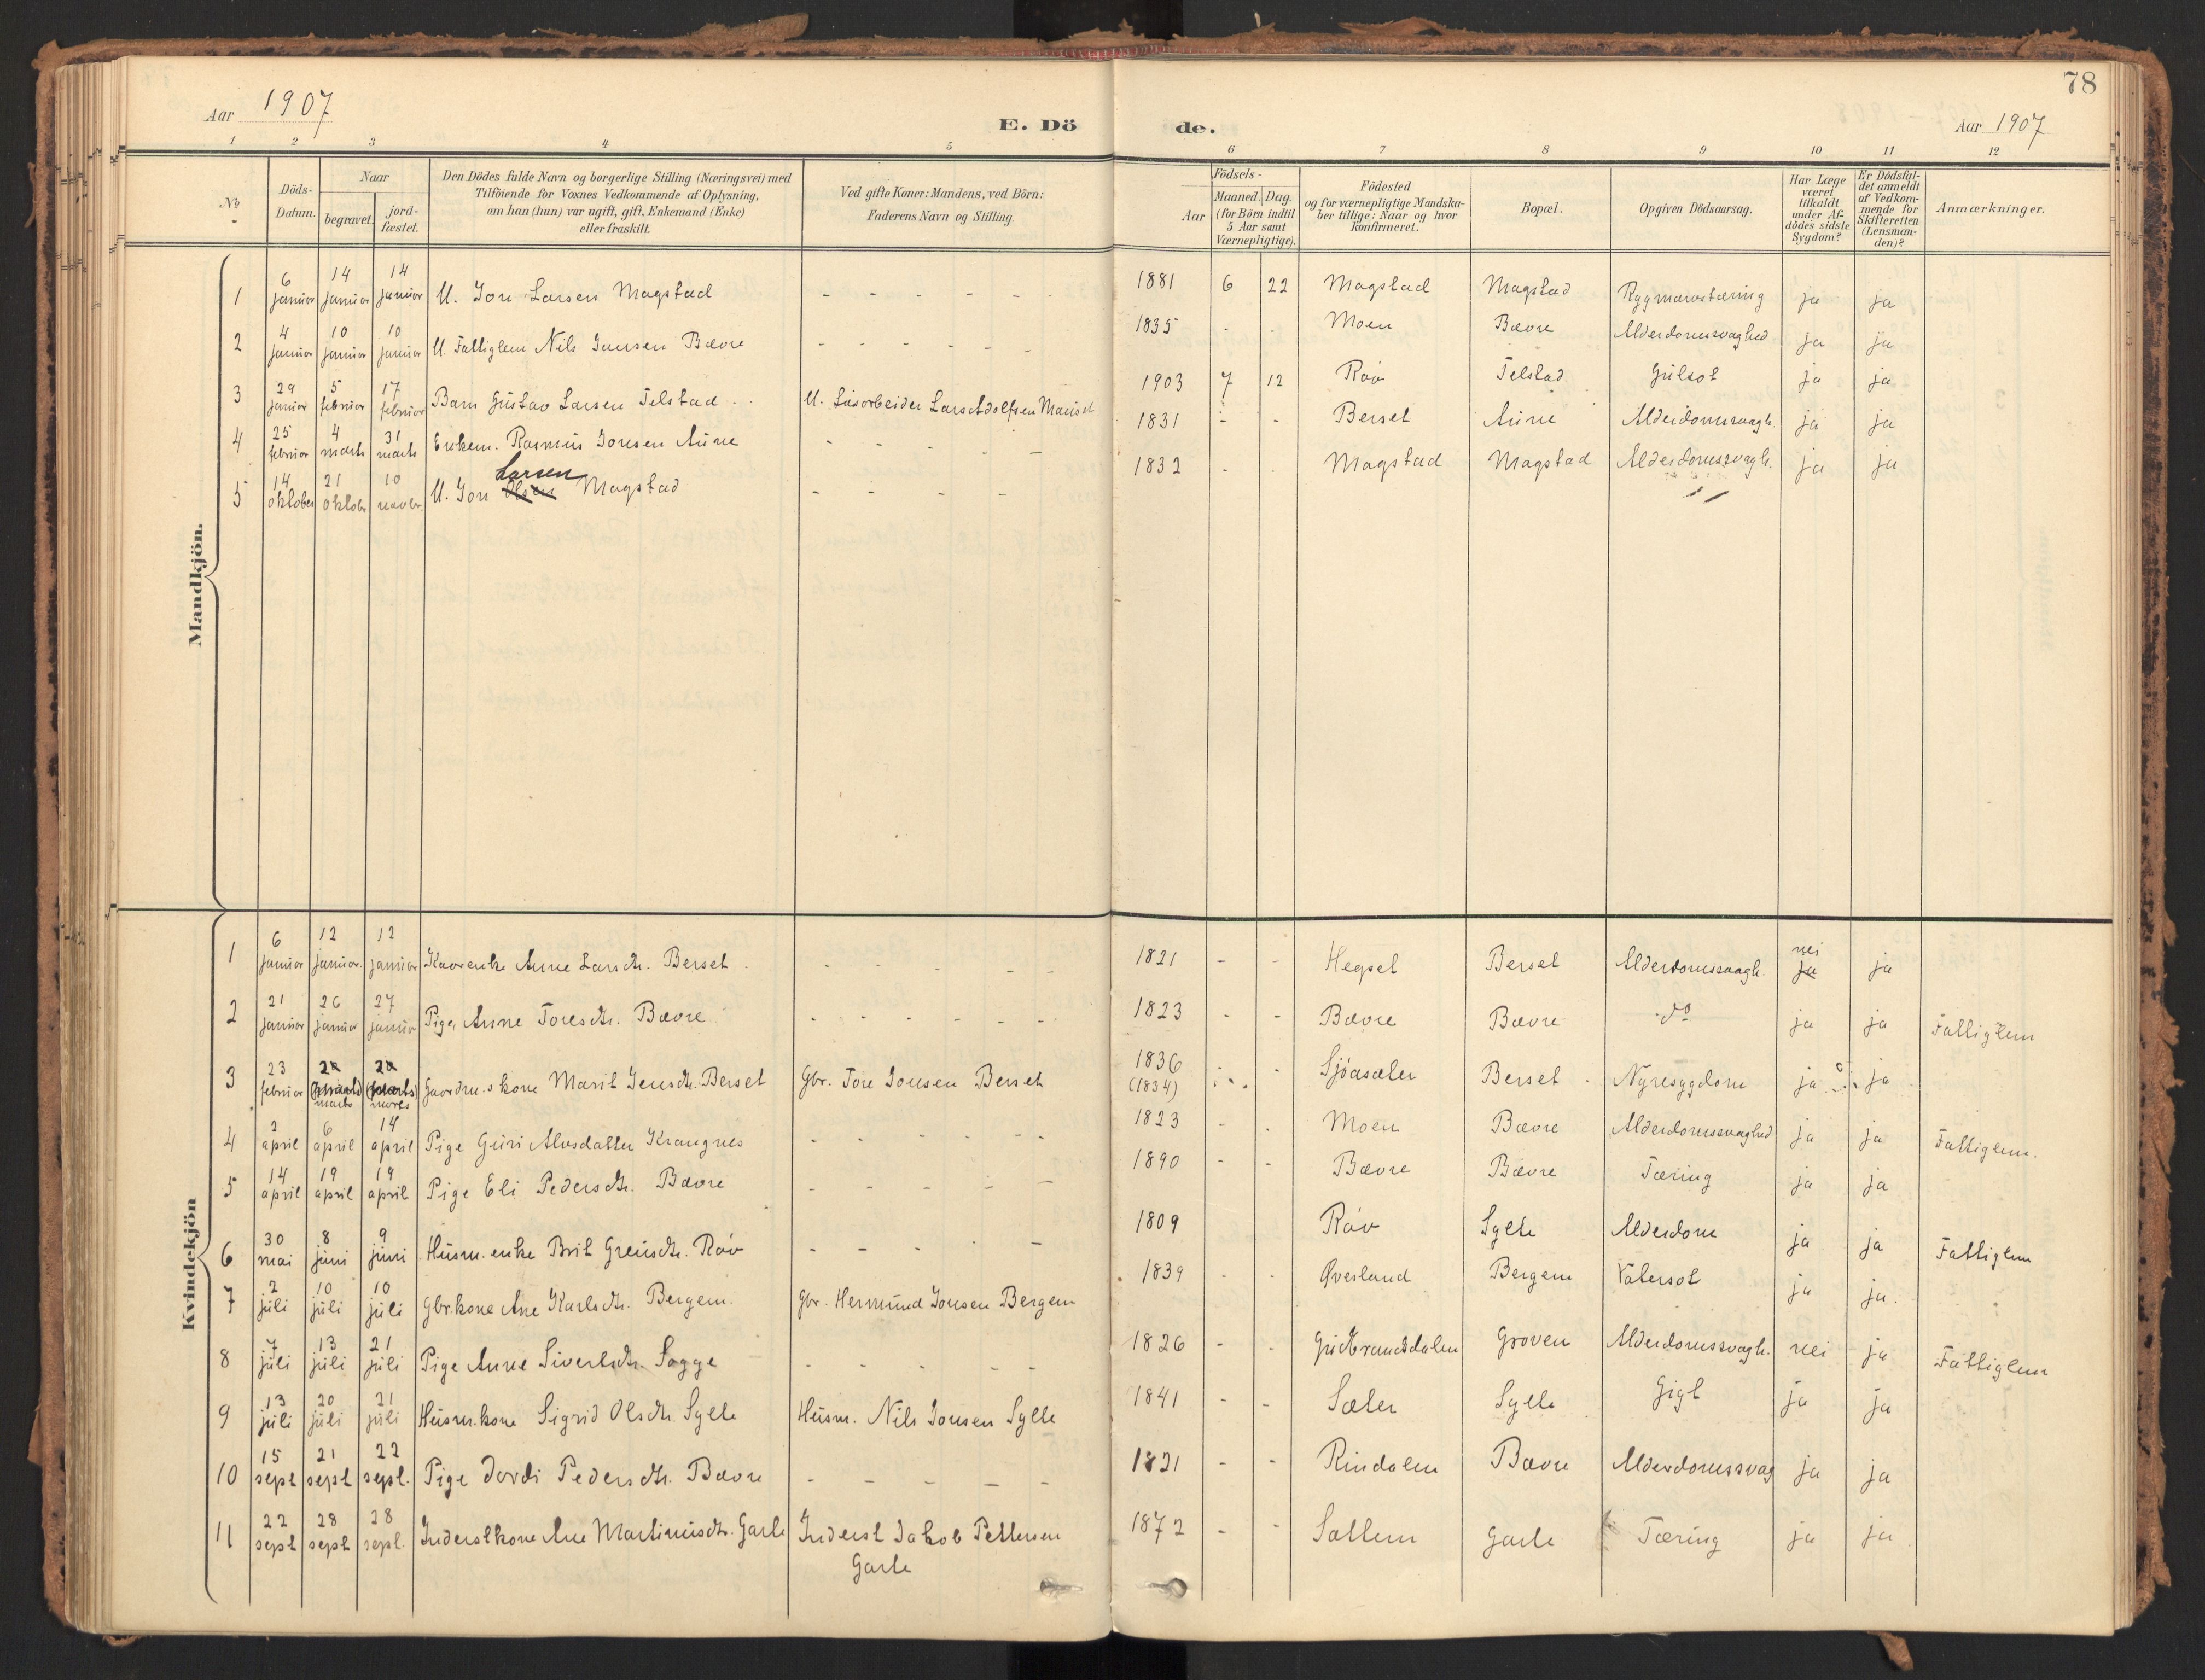 78
Aar 1907
E. Dö
de.
Aar 1907
1 2 3 4 5 6 7 8 9 10 11 12
No
Döds-
Datum.
Naar
begravet.
jord-
fæstet.
Den Dödes fulde Navn og borgerlige Stilling (Næringsvei) med
Tilföiende for Voxnes Vedkommende af Oplysning,
om han (hun) var ugift, gift, Enkemand (Enke)
eller fraskilt.
Ved gifte Koner: Mandens, ved Börn:
Faderens Navn og Stilling.
Födsels-
Aar
Maaned. Dag.
(for Börn indtil
5 Aar samt
Værnepligtige).
Födested
og for værnepligtige Mandska-
ber tillige: Naar og hvor
konfirmeret.
Bopæl.
Opgiven Dödsaarsag.
Har Læge
været
tilkaldt
under Af-
dödes sidste
Sygdom?
Er Dödsfal-
det anmeldt
af Vedkom-
mende for
Skifteretten
(Lensman-
den)?
Anmærkninger.
Mandkjön.
1 6 januar 14 januar 14 januar U. Jon Larsen Magstad - - - - - 1881 6 22 Magstad Magstad Rygmarvstæring ja ja
2 4 januar 10 januar 10 januar U. Fattiglem Nils Jonsen Bævre - - - - - - 1835 - - Moen Bævre Alderdomssvaghed ja ja
3 29 januar 5 februar 17 februar Barn Gustav Larsen Telstad U. Løsarbeider Lars Adolfsen 1903 7 12 Røv Telstad Gulsot ja ja
4 25 februar 4 marts 31 marts Enkem. Rasmus Jonsen Aune - - - - - 1831 - - Berset Aune Alderdomssvagh. ja ja
5 14 oktober 21 oktober 10 novbr. U. Jon Olsen Larsen Magstad - - - - - 1832 - - Magstad Magstad Alderdomssvagh. ja ja
Kvindekjön
1 6 januar 12 januar 12 januar Kaarenke Anne Larsdtr. Berset - - - - - 1821 - - Hegset Berset Alderdomssvagh. ja nei ja
2 21 januar 26 januar 27 januar Pige Anne Toresdtr. Bævre - - - - - 1823 - - Bævre Bævre do ja ja Fattiglem
3 23 februar 2 marts 2 marts Gaardm.s kone Marit Jensdtr. Berset Gbr. Tore Jonsen Berset 1836 (1834) Sjøasæter Berset Nyresygdom ja ja
4 2 april 6 april 14 april Pige Guri Alvsdatter Krangnes - - - - - 1823 - - Moen Bævre Alderdomssvaghed ja ja Fattiglem.
5 14 april 19 april 19 april Pige Eli Pedersdtr. Bævre - - - - - 1890 - - Bævre Bævre Tæring ja ja
6 30 mai 8 juni 9 juni Husm. enke Brit Greusdtr. Røv - - - - - 1809 Røv Sylte Alderdom ja ja Fattiglem
7 2 juli 10 juli 10 juli Gbr. kone Ane Karlsdtr. Bergem. Gbr. Hermund Jonsen Bergem 1839 - - Øverland Bergem Vatersot ja ja.
8 7 juli 13 juli 21 juli Pige Anne Sivertsdtr. Sagge - - - - - 1826 - - Gudbrandsdalen Groven Alderdomssvagh. nei ja Fattiglem
9 13 juli 20 juli 21 juli Husm. kone Sigrid Olsdtr. Sylte Husm. Nils Jonsen Sylte 1841 - - Sæter Sylte Gigt ja ja
10 15 sept 21 sept 22 sept. Pige Dordi Pedersdtr. Bævre - - - - - 1821 - - Rindalen Bævre Alderdomssvag ja ja
11 22 sept 28 sept 28 sept. Inderstkone Ane Martinusdtr. Garte Inderst Jakob Pettersen 1872 - - Settem Garte Tæring ja ja
Garte